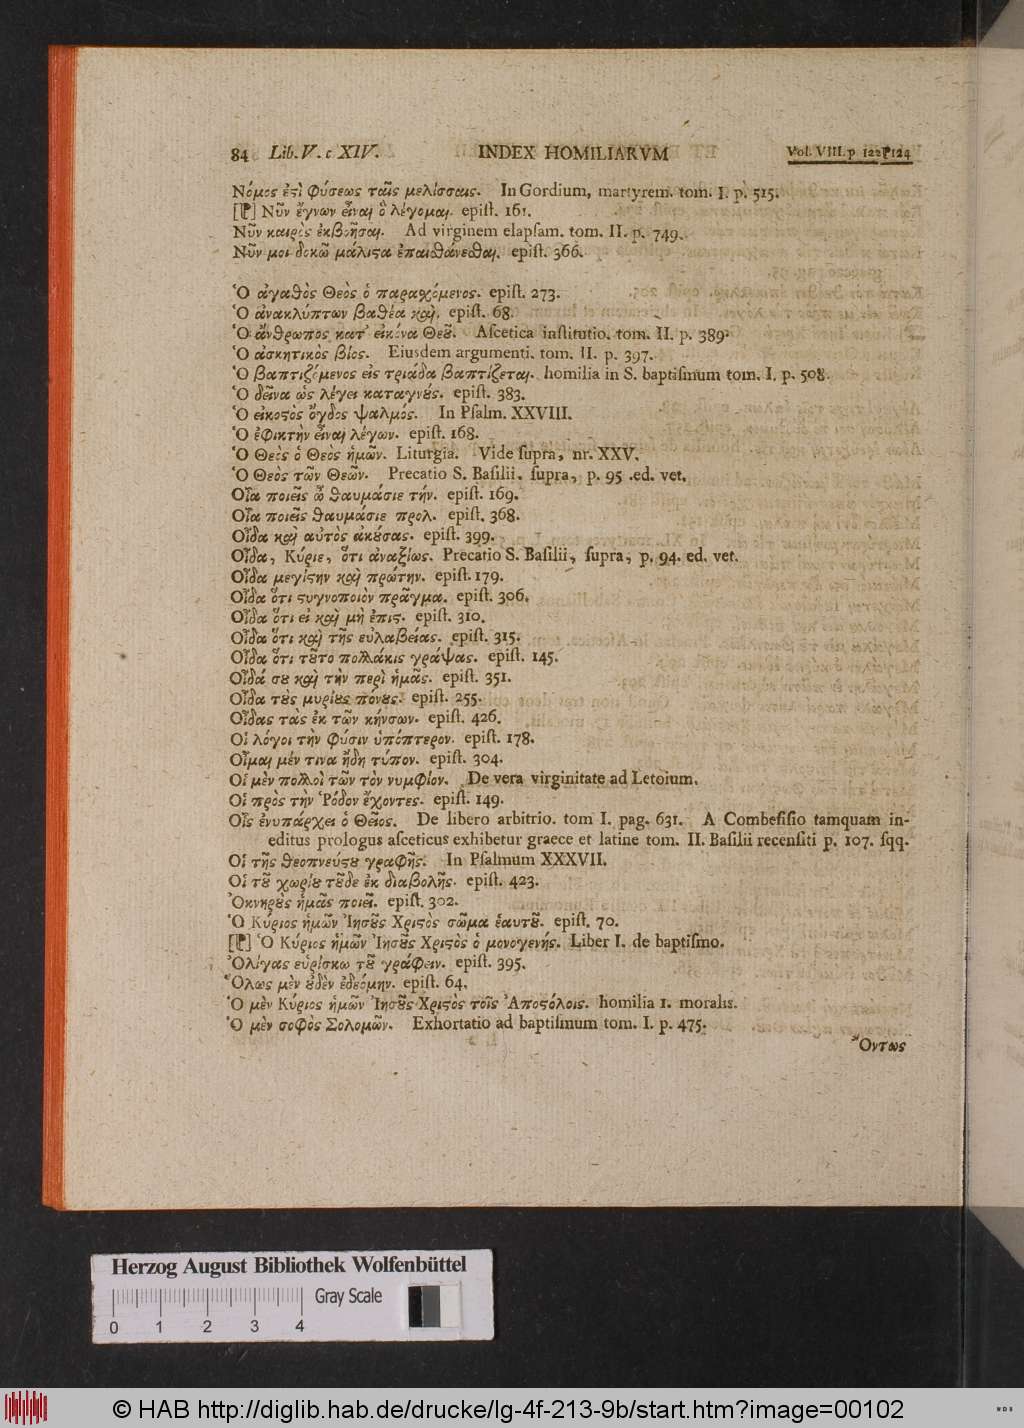 84 Lib. V. c XIV. INDEX HOMILIARVM Vol. VIII. p. 122 124
Νόμος ἐςὶ Φύσεως ταῖς μελίσσαις. In Gordium, martyrem. tom. I. p. 515.
Νῦν ἔγνων εἶναι ὃ λέγομαι. epiſt. 161.
Νῦν καιρὸς ἐκβοῆσαι. Ad virginem elapſam. tom. II. p. 749.
Νῦν μοι δοκῶ μάλιςα ἐπαιθάνεθαι. epiſt. 366.
Ὁ ἀγαθὸς Θεὸς ὁ παραχόμενος. epiſt. 273.
Ὁ ἀνακλύπτων βαθέα καὶ. epiſt. 68.
Ὁ ἄνθρωπος κατ' εἰκόνα Θεοῦ. Aſcetica inſtitutio. tom. II. p. 389.
Ὁ ἀσκητικὸς βίος. Eiusdem argumenti. tom. II. p. 397.
Ὁ βαπτιζόμενος εἰς τριάδα βαπτίζεται. homilia in S. baptiſmum tom. I. p. 508.
Ὁ δεῖνα ὡς λέγει καταγνούς. epiſt. 383.
Ὁ εἰκοςὸς ὄγδος ψαλμός. In Pſalm. XXVIII.
Ὁ ἐφικτὴν εἶναι λέγων. epiſt. 168.
Ὁ Θεὸς ὁ Θεὸς ἡμῶν. Liturgia. Vide ſupra, nr. XXV.
Ὁ Θεὸς τῶν Θεῶν. Precatio S. Baſilii. ſupra, p. 95 .ed. vet.
Οἷα ποιεῖς ὦ θαυμάσιε τήν. epiſt. 169.
Οἷα ποιεῖς θαυμάσιε προλ. epiſt. 368.
Οἶδα καὶ αὐτὸς ἀκούσας. epiſt. 399.
Οἶδα, Κύριε, ὅτι ἀναξίως. Precatio S. Baſilii, ſupra, p. 94. ed. vet.
Οἶδα μεγίςην καὶ πρώτην. epiſt. 179.
Οἶδα ὅτι ςυγνοποιὸν πρᾶγμα. epiſt. 306.
Οἶδα ὅτι εἰ καὶ μὴ ἐπις. epiſt. 310.
Οἶδα ὅτι καὶ τῆς εὐλαβείας. epiſt. 315.
Οἶδα ὅτι τοῦτο πολλάκις γράψας. epiſt. 145.
Οἶδά σου καὶ τὴν περὶ ἡμᾶς. epiſt. 351.
Οἶδα τοὺς μυρίους πόνους. epiſt. 255.
Οἶδας τὰς ἐκ τῶν κήνσων. epiſt. 426.
Οἱ λόγοι τὴν φύσιν ὑπόπτερον. epiſt. 178.
Οἶμαι μέν τινα ἤδη τύπον. epiſt. 304.
Οἱ μὲν πολλοὶ τῶν τὸν νυμφίον. De vera virginitate ad Letoium.
Οἱ πρὸς τὴν Ῥόδον ἔχοντες. epiſt. 149.
Οἷς ἐνυπάρχει ὁ Θεῖος. De libero arbitrio. tom I. pag. 631. A Combefiſio tamquam in-
editus prologus aſceticus exhibetur graece et latine tom. II. Baſilii recenſiti p. 107. ſqq.
Οἱ τῆς θεοπνεύςου γραφῆς. In Pſalmum XXXVII.
Οἱ τοῦ χωρίου τοῦδε ἐκ διαβολῆς. epiſt. 423.
Ὀκνηροὺς ἡμᾶς ποιεῖ. epiſt. 302.
Ὁ Κύριος ἡμῶν Ἰησοῦς Χριςὸς σῶμα ἑαυτοῦ. epiſt. 70.
Ὁ Κύριος ἡμῶν Ἰησοῦς Χριςὸς ὁ μονογενής. Liber I. de baptiſmo.
Ὀλίγας εὑρίσκω τοῦ γράφειν. epiſt. 395.
Ὅλως μὲν οὐδὲν ἐδεόμην. epiſt. 64.
Ὁ μὲν Κύριος ἡμῶν Ἰησοῦς Χριςὸς τοῖς Ἀποςόλοις. homilia 1. moralis.
Ὁ μὲν σοφὸς Σολομῶν. Exhortatio ad baptiſmum tom. I. p. 475.
Ὄντως
Herzog August Bibliothek Wolfenbüttel
Gray Scale
0 1 2 3 4
© HAB http://diglib.hab.de/drucke/lg-4f-213-9b/start.htm?image=00102